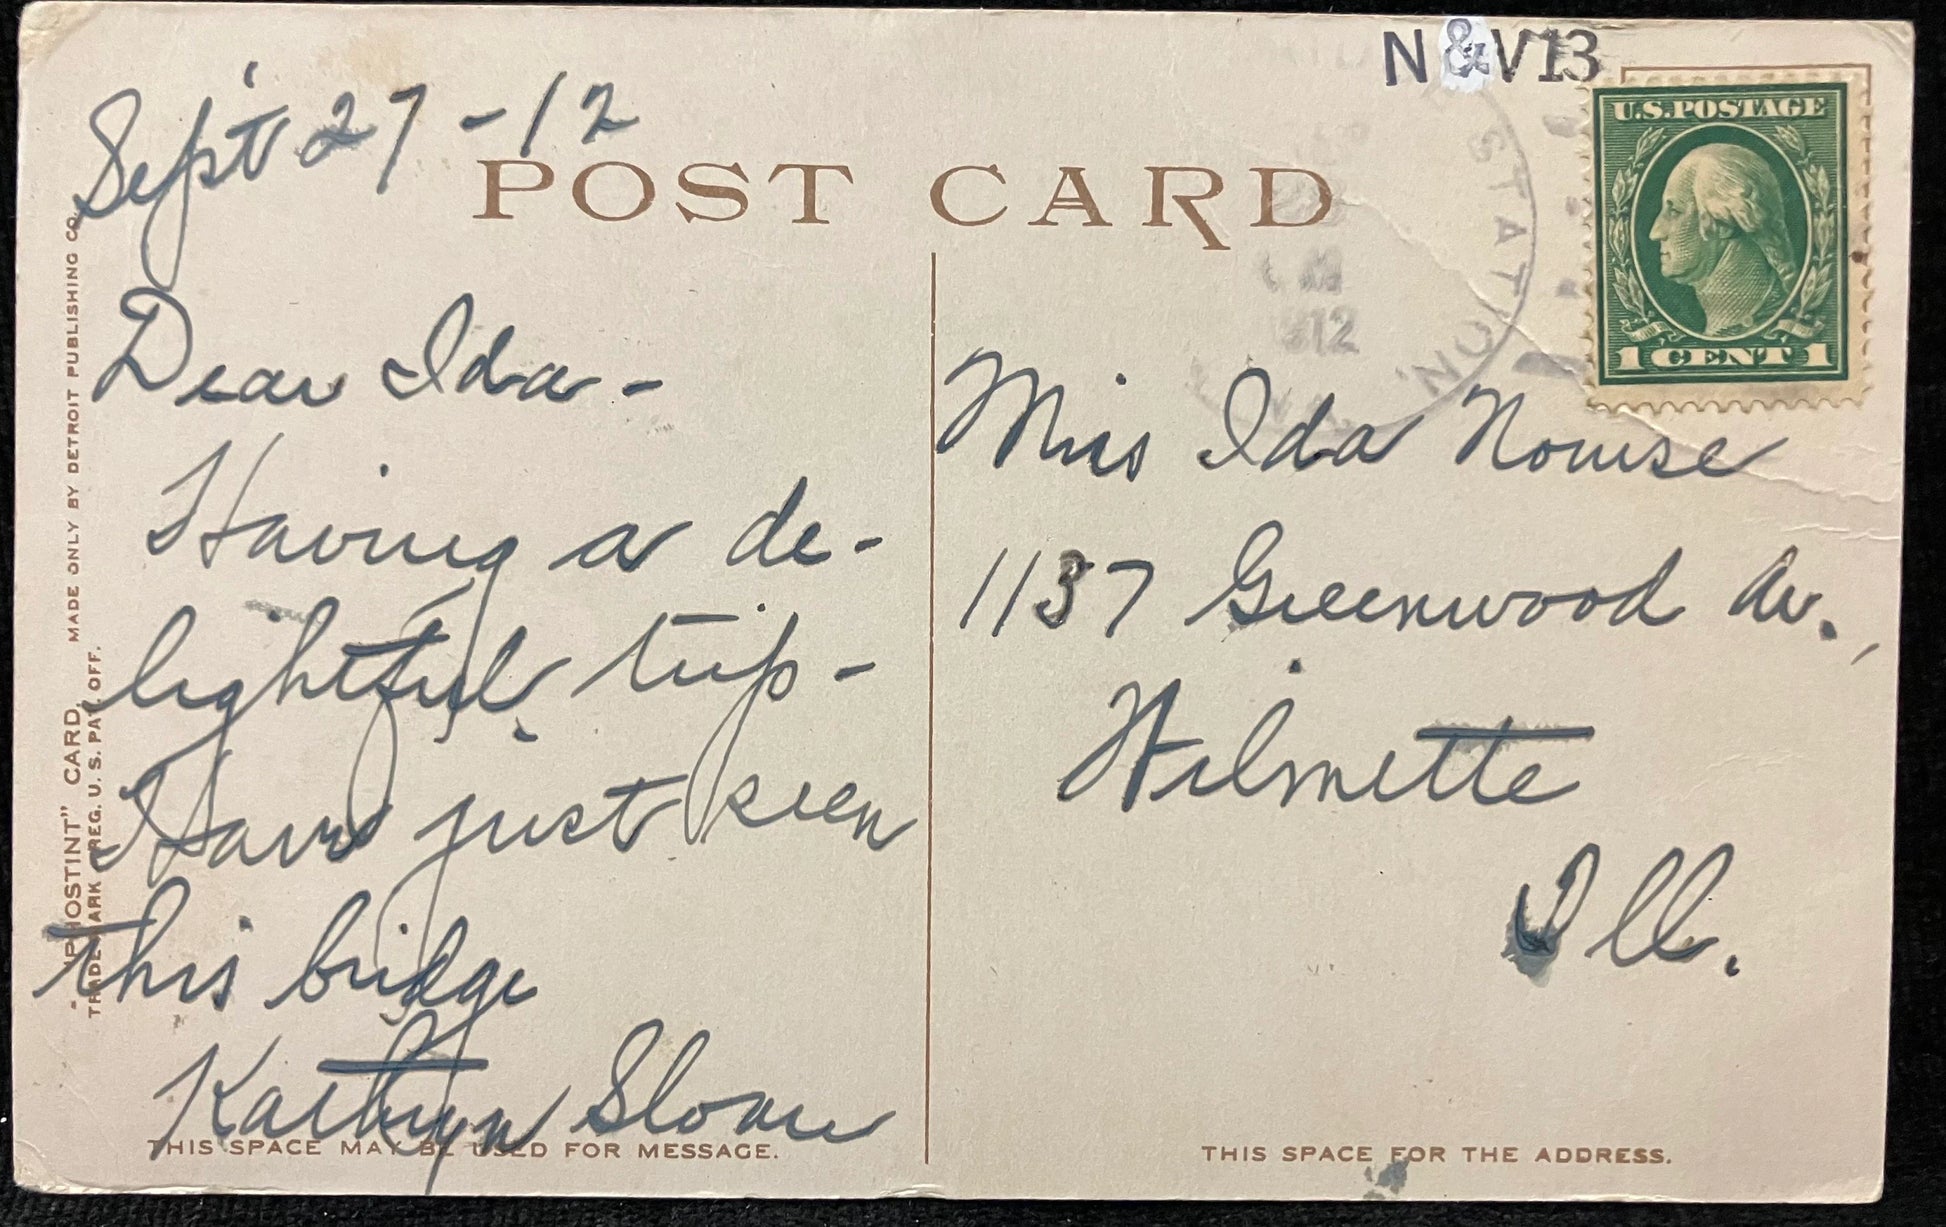 Sep't 27-12
POST CARD
N&V13
U.S. POSTAGE
1 CENT 1
STATION.
M
1912
"PHOSTINT" CARD, MADE ONLY BY DETROIT PUBLISHING CO.
TRADE MARK REG. U. S. PAT. OFF.
Dear Ida -
Having a de-
lightful trip -
Have just seen
this bridge
Kathryn Sloan
THIS SPACE MAY BE USED FOR MESSAGE.
Miss Ida Nourse
1137 Greenwood Av.,
Wilmette
Ill.
THIS SPACE FOR THE ADDRESS.